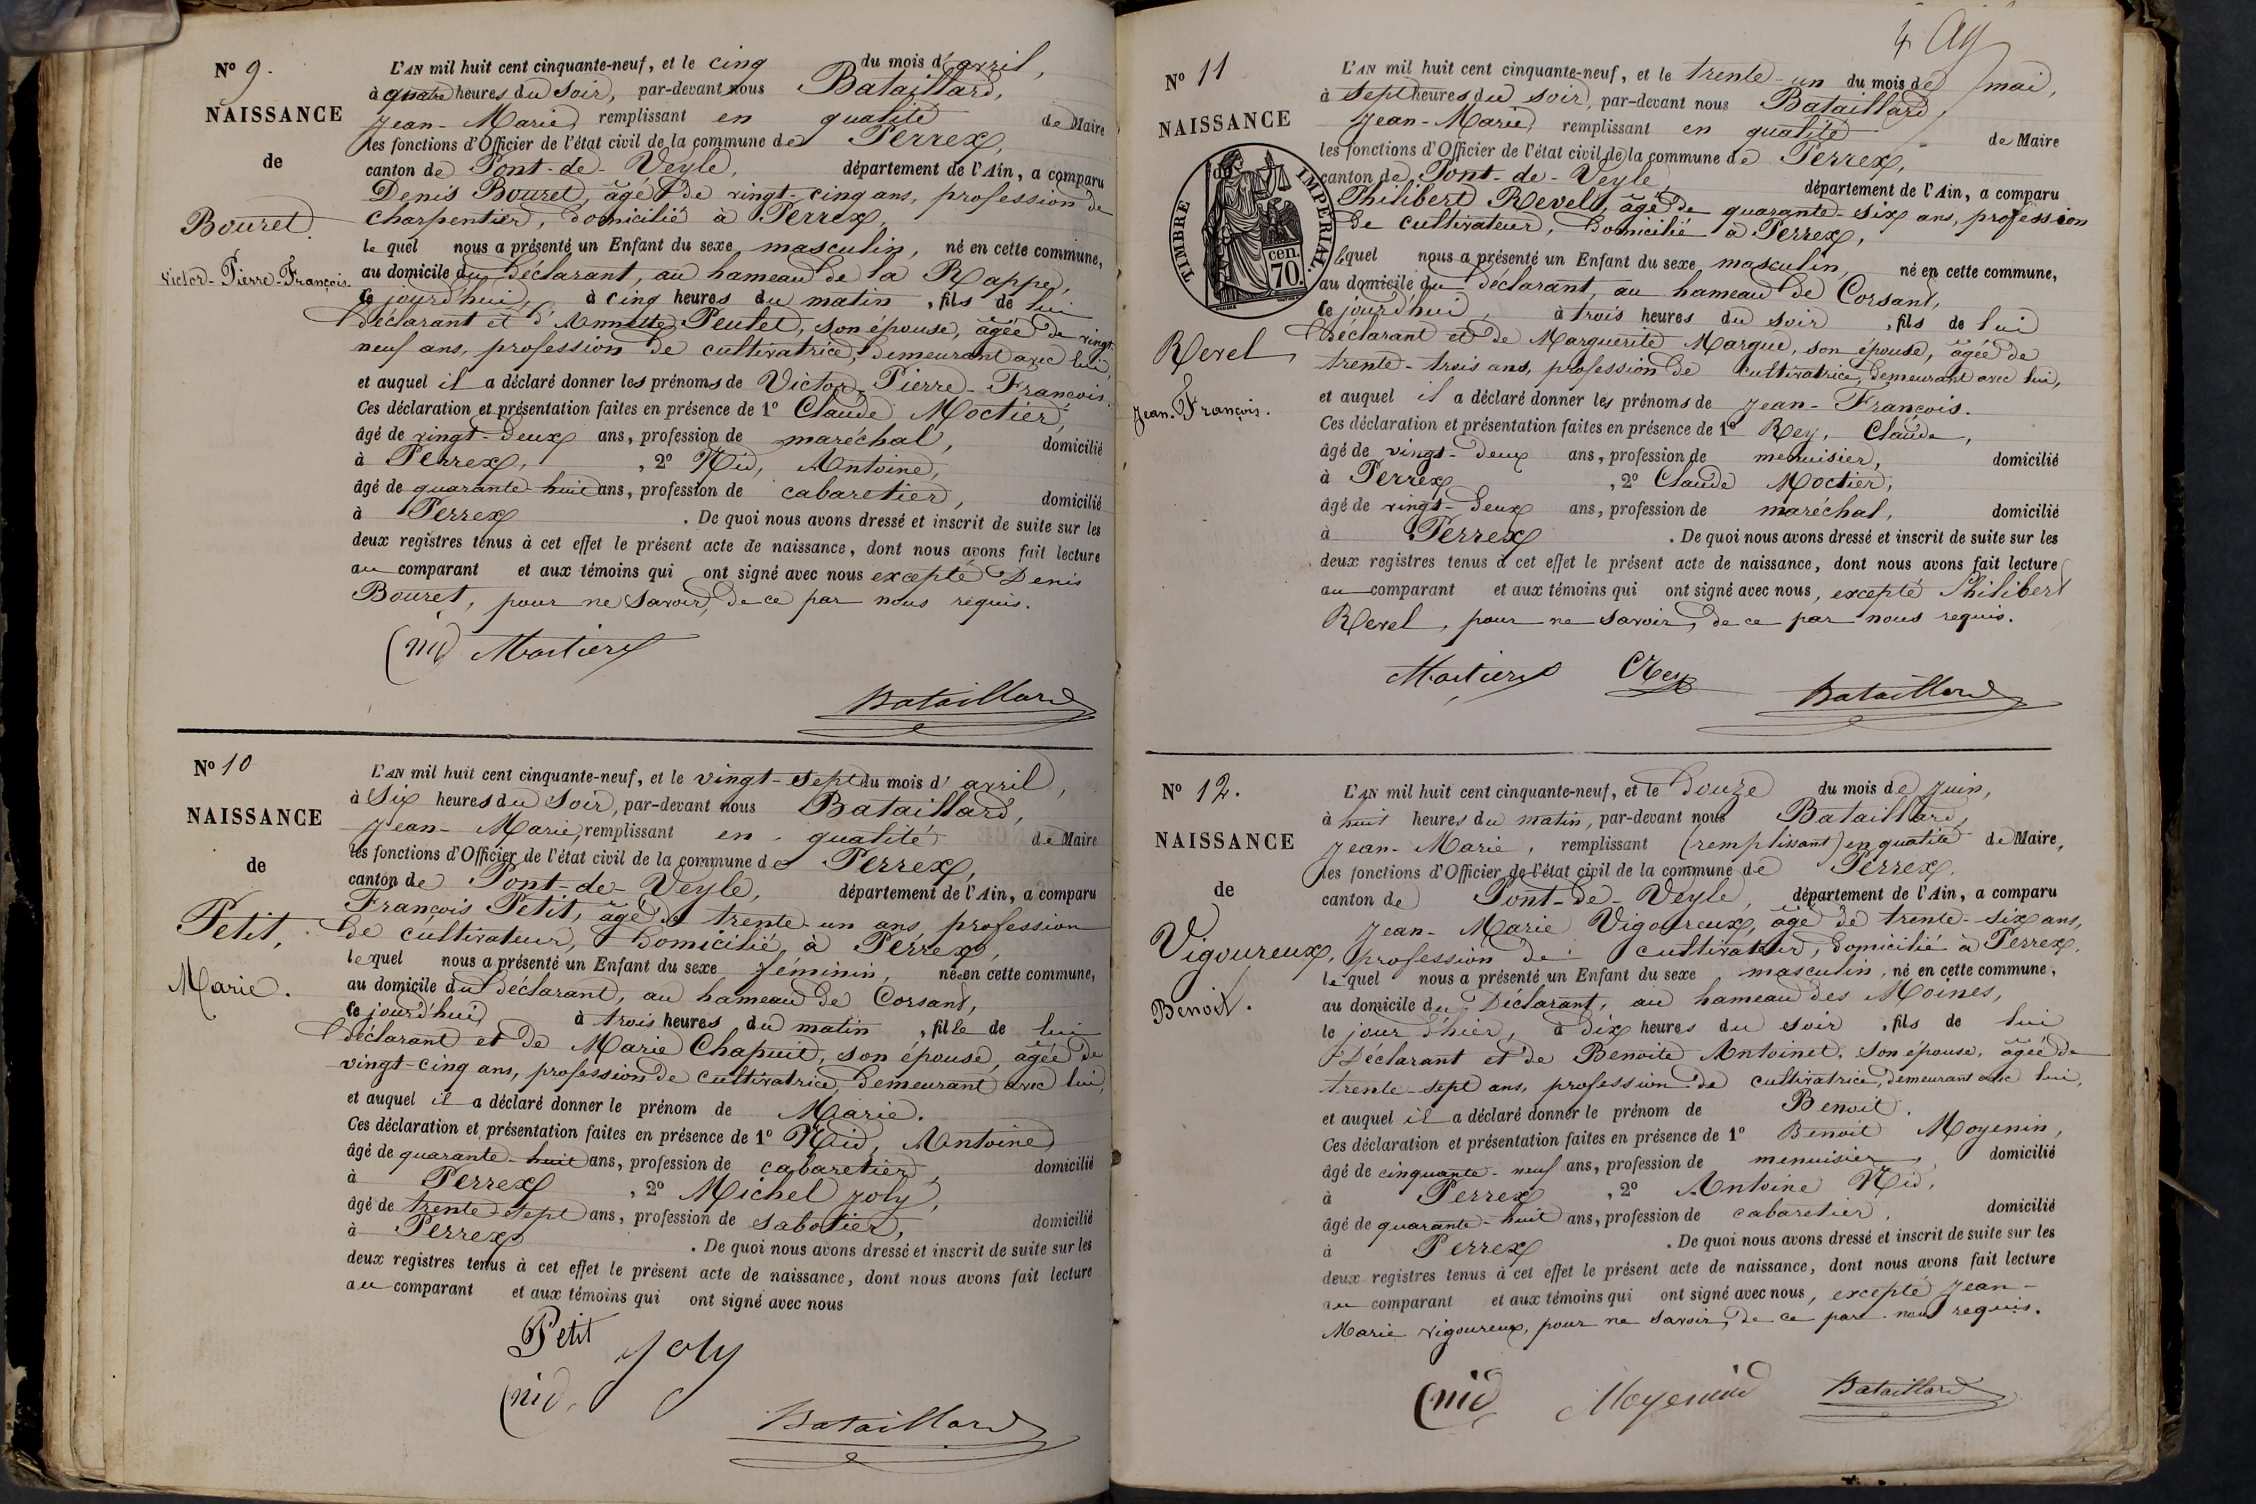 N° 9.
NAISSANCE
de
Bouret
Victor-Pierre-François.
L'AN mil huit cent cinquante-neuf, et le cinq du mois d'avril,
à quatre heures du soir, par-devant nous Bataillard,
Jean-Marie remplissant en qualité de Maire
les fonctions d'Officier de l'état civil de la commune de Perrex,
canton de Pont-de-Veyle, département de l'Ain, a comparu
Denis Bouret, âgé de vingt-cinq ans, profession de
charpentier, domicilié à Perrex,
lequel nous a présenté un Enfant du sexe masculin, né en cette commune,
au domicile du déclarant, au hameau de la Rappe,
ce jourd'hui, à cinq heures du matin, fils de lui
déclarant et d'Annette Peulet, son épouse, âgée de vingt
neuf ans, profession de cultivatrice, demeurant avec lui,
et auquel il a déclaré donner les prénoms de Victor-Pierre-François.
Ces déclaration et présentation faites en présence de 1° Claude Moctier,
âgé de vingt-deux ans, profession de maréchal, domicilié
à Perrex, , 2° Nid, Antoine,
âgé de quarante-huit ans, profession de cabaretier, domicilié
à Perrex . De quoi nous avons dressé et inscrit de suite sur les
deux registres tenus à cet effet le présent acte de naissance, dont nous avons fait lecture
au comparant et aux témoins qui ont signé avec nous excepté Denis
Bouret, pour ne savoir, de ce par nous requis.
Nid Moctier
Bataillard
N° 10
NAISSANCE
de
Petit,
Marie.
L'AN mil huit cent cinquante-neuf, et le vingt-sept du mois d'avril,
à six heures du soir, par-devant nous Bataillard,
Jean-Marie, remplissant en qualité de Maire
les fonctions d'Officier de l'état civil de la commune de Perrex,
canton de Pont-de-Veyle, département de l'Ain, a comparu
François Petit, âgé de trente-un ans, profession
de cultivateur, domicilié à Perrex,
lequel nous a présenté un Enfant du sexe féminin, né en cette commune,
au domicile du déclarant, au hameau de Corsant,
ce jourd'hui à trois heures du matin, fille de lui
déclarant et de Marie Chapuit, son épouse, âgée de
vingt-cinq ans, profession de cultivatrice, demeurant avec lui,
et auquel il a déclaré donner le prénom de Marie.
Ces déclaration et présentation faites en présence de 1° Nid, Antoine
âgé de quarante-huit ans, profession de cabaretier, domicilié
à Perrex , 2° Michel Joly,
âgé de trente-sept ans, profession de sabotier, domicilié
à Perrex . De quoi nous avons dressé et inscrit de suite sur les
deux registres tenus à cet effet le présent acte de naissance, dont nous avons fait lecture
au comparant et aux témoins qui ont signé avec nous
Petit Joly
Nid
Bataillard
4
N° 11
NAISSANCE
de
TIMBRE IMPÉRIAL.
70. cen.
Revel,
Jean-François.
L'AN mil huit cent cinquante-neuf, et le trente-un du mois de mai,
à sept heures du soir, par-devant nous Bataillard,
Jean-Marie, remplissant en qualité de Maire
les fonctions d'Officier de l'état civil de la commune de Perrex,
canton de Pont-de-Veyle, département de l'Ain, a comparu
Philibert Revel, âgé de quarante-six ans, profession
de cultivateur, domicilié à Perrex,
lequel nous a présenté un Enfant du sexe masculin, né en cette commune,
au domicile du déclarant, au hameau de Corsant,
ce jourd'hui, à trois heures du soir, fils de lui
déclarant et de Marguerite Margue, son épouse, âgée de
trente-trois ans, profession de cultivatrice, demeurant avec lui,
et auquel il a déclaré donner les prénoms de Jean-François.
Ces déclaration et présentation faites en présence de 1° Rey, Claude,
âgé de vingt-deux ans, profession de menuisier, domicilié
à Perrex , 2° Claude Moctier,
âgé de vingt-deux ans, profession de maréchal, domicilié
à Perrex . De quoi nous avons dressé et inscrit de suite sur les
deux registres tenus à cet effet le présent acte de naissance, dont nous avons fait lecture
au comparant et aux témoins qui ont signé avec nous, excepté Philibert
Revel, pour ne savoir, de ce par nous requis.
Moctier CRey
Bataillard
N° 12.
NAISSANCE
de
Vigoureux,
Benoit.
L'AN mil huit cent cinquante-neuf, et le douze du mois de Juin,
à huit heures du matin, par-devant nous Bataillard,
Jean-Marie, remplissant (remplissant) en qualité de Maire,
les fonctions d'Officier de l'état civil de la commune de Perrex,
canton de Pont-de-Veyle, département de l'Ain, a comparu
Jean-Marie Vigoureux, âgé de trente-six ans,
profession de cultivateur, domicilié à Perrex,
lequel nous a présenté un Enfant du sexe masculin, né en cette commune,
au domicile du Déclarant, au hameau des Moines,
le jour d'hier, à dix heures du soir, fils de lui
Déclarant et de Benoite Antoinet, son épouse, âgée de
trente-sept ans, profession de cultivatrice, demeurant avec lui,
et auquel il a déclaré donner le prénom de Benoit.
Ces déclaration et présentation faites en présence de 1° Benoit Moyenin,
âgé de cinquante-neuf ans, profession de menuisier, domicilié
à Perrex , 2° Antoine Nid,
âgé de quarante-huit ans, profession de cabaretier, domicilié
à Perrex . De quoi nous avons dressé et inscrit de suite sur les
deux registres tenus à cet effet le présent acte de naissance, dont nous avons fait lecture
au comparant et aux témoins qui ont signé avec nous, excepté Jean-
Marie Vigoureux, pour ne savoir, de ce par nous requis.
Nid Moyenin Bataillard